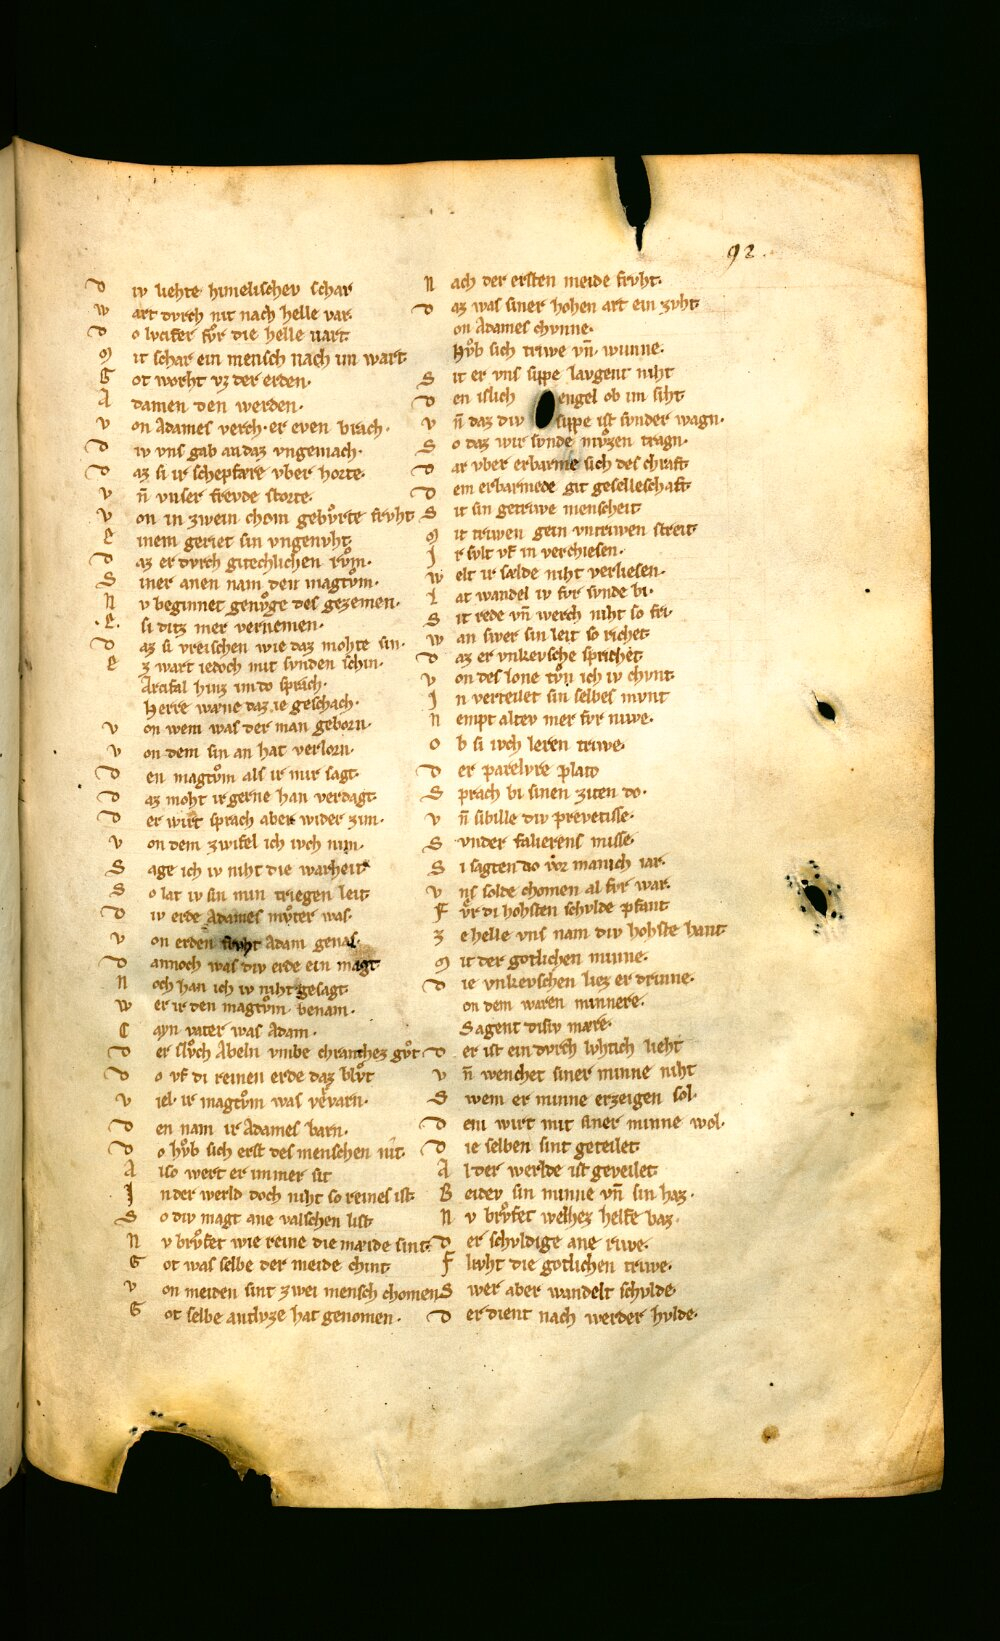 92.
D iv liehte himelischev schar
W art dvrch nit nach helle var.
D o lvcifer fvͦr die helle vart
M it schar ein mensch nach im wart
G ot worht vz der erden.
A damen den werden.
V on Adames verch. er even brach.
D iv vns gab an daz vngemach.
D az si ir schepfære vber horte.
V n̄ vnser frevde storte.
V on in zwein chom gebvͦrte frvht
E inem geriet sin vngenvht
D az er dvrch gitechlichen rvͦm.
S iner anen nam den magtvͦm.
N v beginnet genvͦge des gezemen.
.E. si ditz mer vernemen.
D az si vreischen wie daz mohte sin.
E z wart iedoch mit svnden schin.
Arcifal hinz im do sprach.
Herre wane daz ie geschach.
V on wem was der man geborn.
V on dem sin an hat verlorn.
D en magtvͦm als ir mir sagt.
D az moht ir gerne han verdagt
D er wirt sprach aber wider zim.
V on dem zwifel ich ivch nim.
S age ich iv niht die warheit
S o lat iv sin min triegen leit
D iv erde Adames mvͦter was.
V on erden frvht Adam genas.
D annoch was div erde ein magt
N och han ich iv niht gesagt
W er ir den magtvͦm benam.
C ayn vater was Adam.
D er slvͦch Abeln vmbe chranchez gvͦt
D o vf di reinen erde daz blvͦt
V iel. ir magtvͦm was vervarn.
D en nam ir Adames barn.
D o hvͦb sich erst des menschen nit.
A lso wert er immer sit
I n der werld doch niht so reines ist
S o div magt ane valschen list
N v brvͤfet wie reine die mæide sint
G ot was selbe der meide chint
V on meiden sint zwei mensch chomen
G ot selbe antlvze hat genomen.
N ach der ersten meide frvht.
D az was siner hohen art ein zvht
on Adames chvnne.
Hvͦb sich triwe vn̄. wunne.
S it er vns sippe lavgent niht
D en islich engel ob im siht
V n̄ daz div sippe ist svnder wagn.
S o daz wir svnde mvͤzen tragn.
D ar vber erbarme sich des chraft
D em erbarmede git geselleschaft
S it sin getriwe menscheit
M it triwen gein vntriwen streit
I r svlt vf in verchiesen.
W elt ir sælde niht verliesen.
L at wandel iv fvr svnde bi.
S it rede vn̄ werch niht so fri.
W an swer sin leit so richet
D az er vnkevsche sprichet
V on des lone tvͦn ich iv chvnt
I n verteilet sin selbes mvnt
N empt altev mer fvr niwe.
O b si ivch leren triwe.
D er parelvre plato
S prach bi sinen ziten do.
V n̄ sibille div prevetisse.
S vnder falierens misse.
S i sagten do vor manich iar.
V ns solde chomen al fvr war.
F vͤr di hohsten schvlde pfant
Z e helle vns nam div hohste hant
M it der gotlichen minne.
D ie vnkevschen liez er drinne.
on dem waren minnere.
Sagent disiv mære.
D er ist ein dvrch lvhtich lieht
V n̄ wenchet siner minne niht
S wem er minne erzeigen sol.
D em wirt mit siner minne wol.
D ie selben sint geteilet
A l der werlde ist geveilet
B eidev sin minne vn̄ sin haz.
N v brvͤfet welhez helfe baz.
D er schvldige ane rivwe.
F livht die gotlichen triwe.
S wer aber wandelt schvlde
D er dient nach werder hvlde.